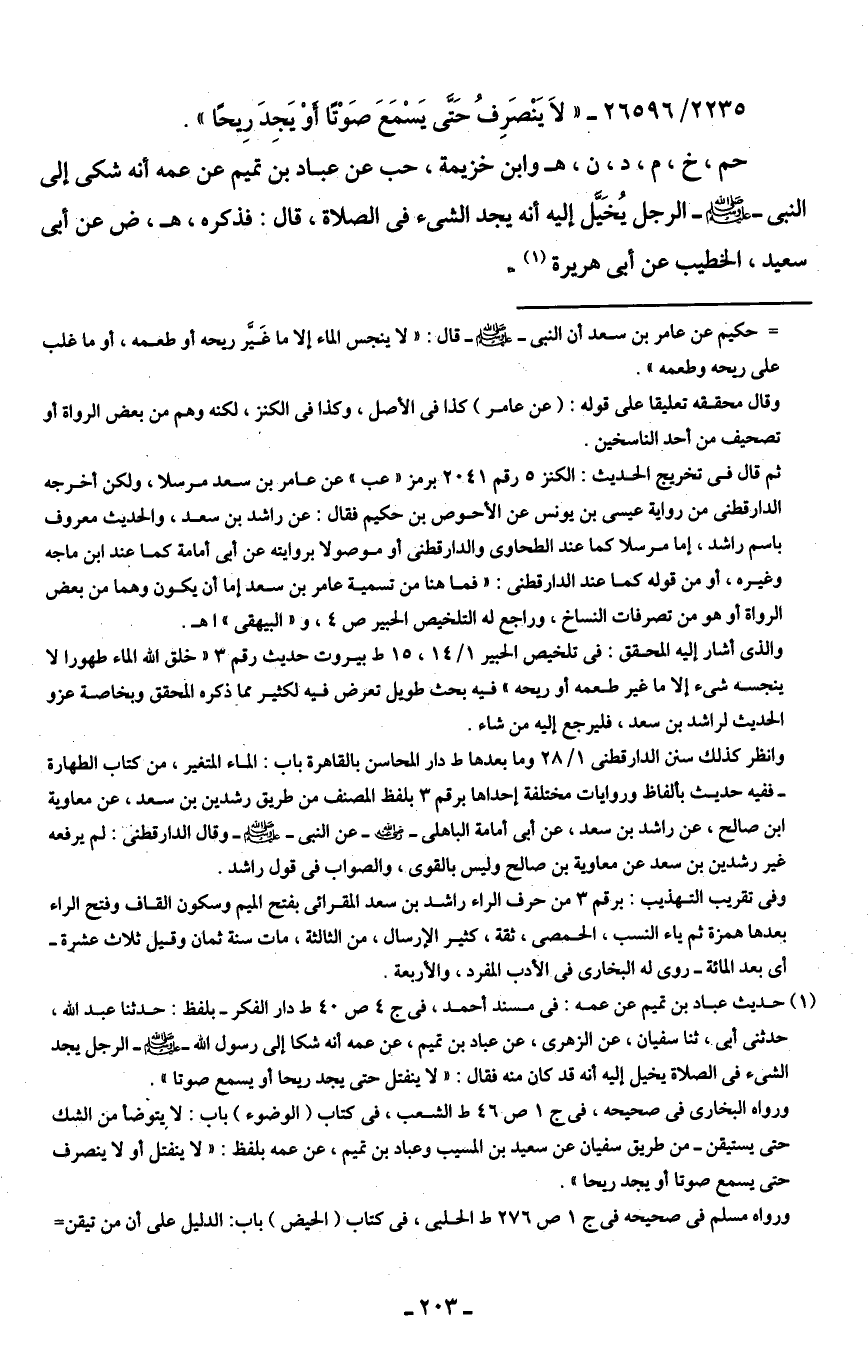 ٢٦٥٩٦/٢٢٣٥ ـ « لاَ يَنْصَرِفُ حَتَّى يَسْمَعَ صَوْتًا أَوْ يَجِدَ رِيحًا » .
حم ، خ ، م ، د ، ن ، هـ وابن خزيمة ، حب عن عباد بن تميم عن عمه أنه شكى إلى
النبى ـ ﷺ ـ الرجل يُخَيَّل إليه أنه يجد الشىء فى الصلاة ، قال : فذكره ، هـ ، ض عن أبى
سعيد ، الخطيب عن أبى هريرة (١) .
= حكيم عن عامر بن سعد أن النبى ـ ﷺ ـ قال : « لا ينجس الماء إلا ما غَيَّر ريحه أو طعمه ، أو ما غلب
على ريحه وطعمه » .
وقال محققه تعليقا على قوله : ( عن عامر ) كذا فى الأصل ، وكذا فى الكنز ، لكنه وهم من بعض الرواة أو
تصحيف من أحد الناسخين .
ثم قال فى تخريج الحديث : الكنز ٥ رقم ٢٠٤١ برمز « عب » عن عامر بن سعد مرسلا ، ولكن أخرجه
الدارقطنى من رواية عيسى بن يونس عن الأحوص بن حكيم فقال : عن راشد بن سعد ، والحديث معروف
باسم راشد ، إما مرسلا كما عند الطحاوى والدارقطنى أو موصولا بروايته عن أبى أمامة كما عند ابن ماجه
وغيره ، أو من قوله كما عند الدارقطنى : « فما هنا من تسمية عامر بن سعد إما أن يكون وهما من بعض
الرواة أو هو من تصرفات النساخ ، وراجع له التلخيص الحبير ص ٤ ، و « البيهقى » ا هـ .
والذى أشار إليه المحقق : فى تلخيص الحبير ١/ ١٤ ، ١٥ ط بيروت حديث رقم ٣ « خلق الله الماء طهورا لا
ينجسه شىء إلا ما غير طعمه أو ريحه » فيه بحث طويل تعرض فيه لكثير مما ذكره المحقق وبخاصة عزو
الحديث لراشد بن سعد ، فليرجع إليه من شاء .
وانظر كذلك سنن الدارقطنى ١/ ٢٨ وما بعدها ط دار المحاسن بالقاهرة باب : الماء المتغير ، من كتاب الطهارة
ـ ففيه حديث بألفاظ وروايات مختلفة إحداها برقم ٣ بلفظ المصنف من طريق رشدين بن سعد ، عن معاوية
ابن صالح ، عن راشد بن سعد ، عن أبى أمامة الباهلى ـ رضي الله عنه ـ عن النبى ـ ﷺ ـ وقال الدارقطنى : لم يرفعه
غير رشدين بن سعد عن معاوية بن صالح وليس بالقوى ، والصواب فى قول راشد .
وفى تقريب التهذيب : برقم ٣ من حرف الراء راشد بن سعد المقرائى بفتح الميم وسكون القاف وفتح الراء
بعدها همزة ثم ياء النسب ، الحمصى ، ثقة ، كثير الإرسال ، من الثالثة ، مات سنة ثمان وقيل ثلاث عشرة ـ
أى بعد المائة ـ روى له البخارى فى الأدب المفرد ، والأربعة .
(١) حديث عباد بن تميم عن عمه : فى مسند أحمد ، فى ج ٤ ص ٤٠ ط دار الفكر ـ بلفظ : حدثنا عبد الله ،
حدثنى أبى ، ثنا سفيان ، عن الزهرى ، عن عباد بن تميم ، عن عمه أنه شكا إلى رسول الله ـ ﷺ ـ الرجل يجد
الشىء فى الصلاة يخيل إليه أنه قد كان منه فقال : « لا ينفتل حتى يجد ريحا أو يسمع صوتا » .
ورواه البخارى فى صحيحه ، فى ج ١ ص ٤٦ ط الشعب ، فى كتاب ( الوضوء ) باب : لا يتوضأ من الشك
حتى يستيقن ـ من طريق سفيان عن سعيد بن المسيب وعباد بن تميم ، عن عمه بلفظ : « لا ينفتل أو لا ينصرف
حتى يسمع صوتا أو يجد ريحا » .
ورواه مسلم فى صحيحه فى ج ١ ص ٢٧٦ ط الحلبى ، فى كتاب ( الحيض ) باب: الدليل على أن من تيقن=
ـ ٢٠٣ ـ